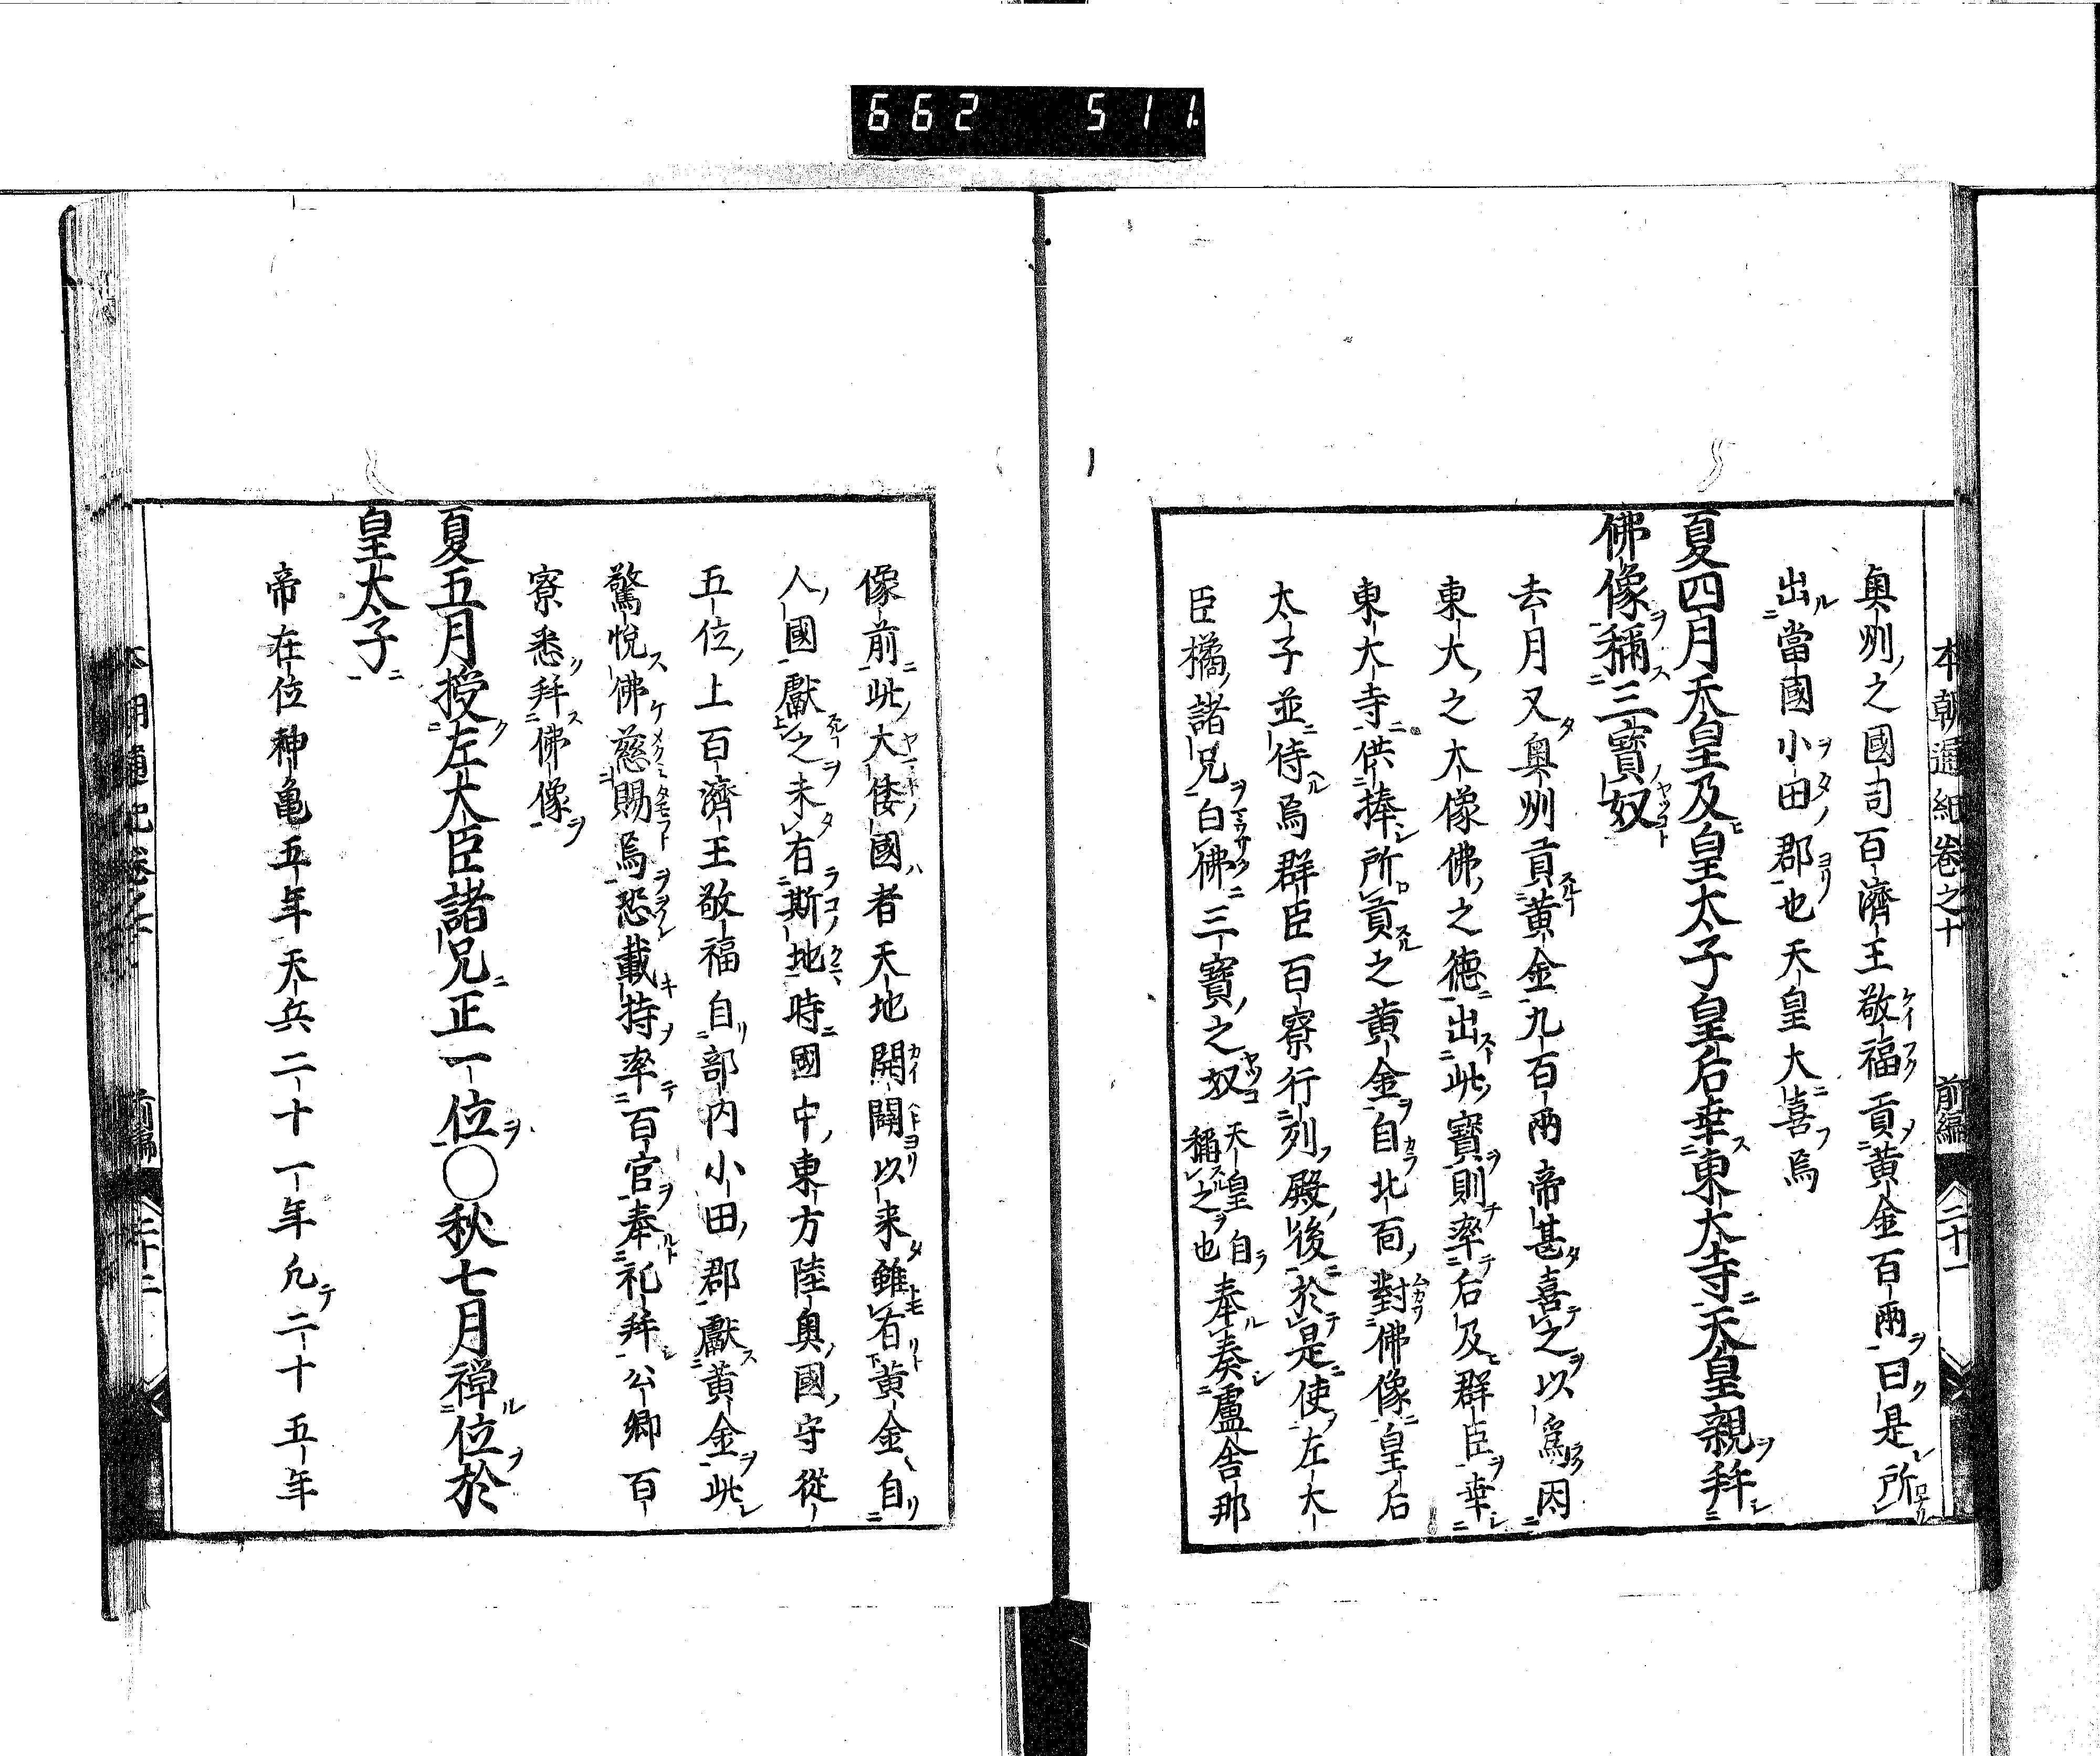 662 511.
本朝通紀卷之十 前編 二十一
奥州之國司百濟王敬福貢黄金百兩曰是所
出當國小田郡也天皇大喜焉
夏四月天皇及皇太子皇后幸東大寺天皇親拜
佛像稱三寶奴
去月又奥州貢黄金九百兩帝甚喜之以爲因
東大之大像佛之德出此寶則率后及群臣幸
東大寺供捧所貢之黄金自北面對佛像皇后
太子並侍焉群臣百寮行列殿後於是使左大
臣橘諸兄白佛三寶之奴天皇自稱之也奉奏盧舎那
像前此大倭國者天地開闢以来雖有黄金自
人國獻之未有斯地時國中東方陸奥國守從
五位上百濟王敬福自部内小田郡獻黄金此
驚悦佛慈賜焉恐載持率百官奉礼拜公卿百
寮悉拜佛像
夏五月授左大臣諸兄正一位○秋七月禅位於
皇太子
帝在位神亀五年天兵二十一年凢二十五年
本朝通紀卷之十 前編 二十二